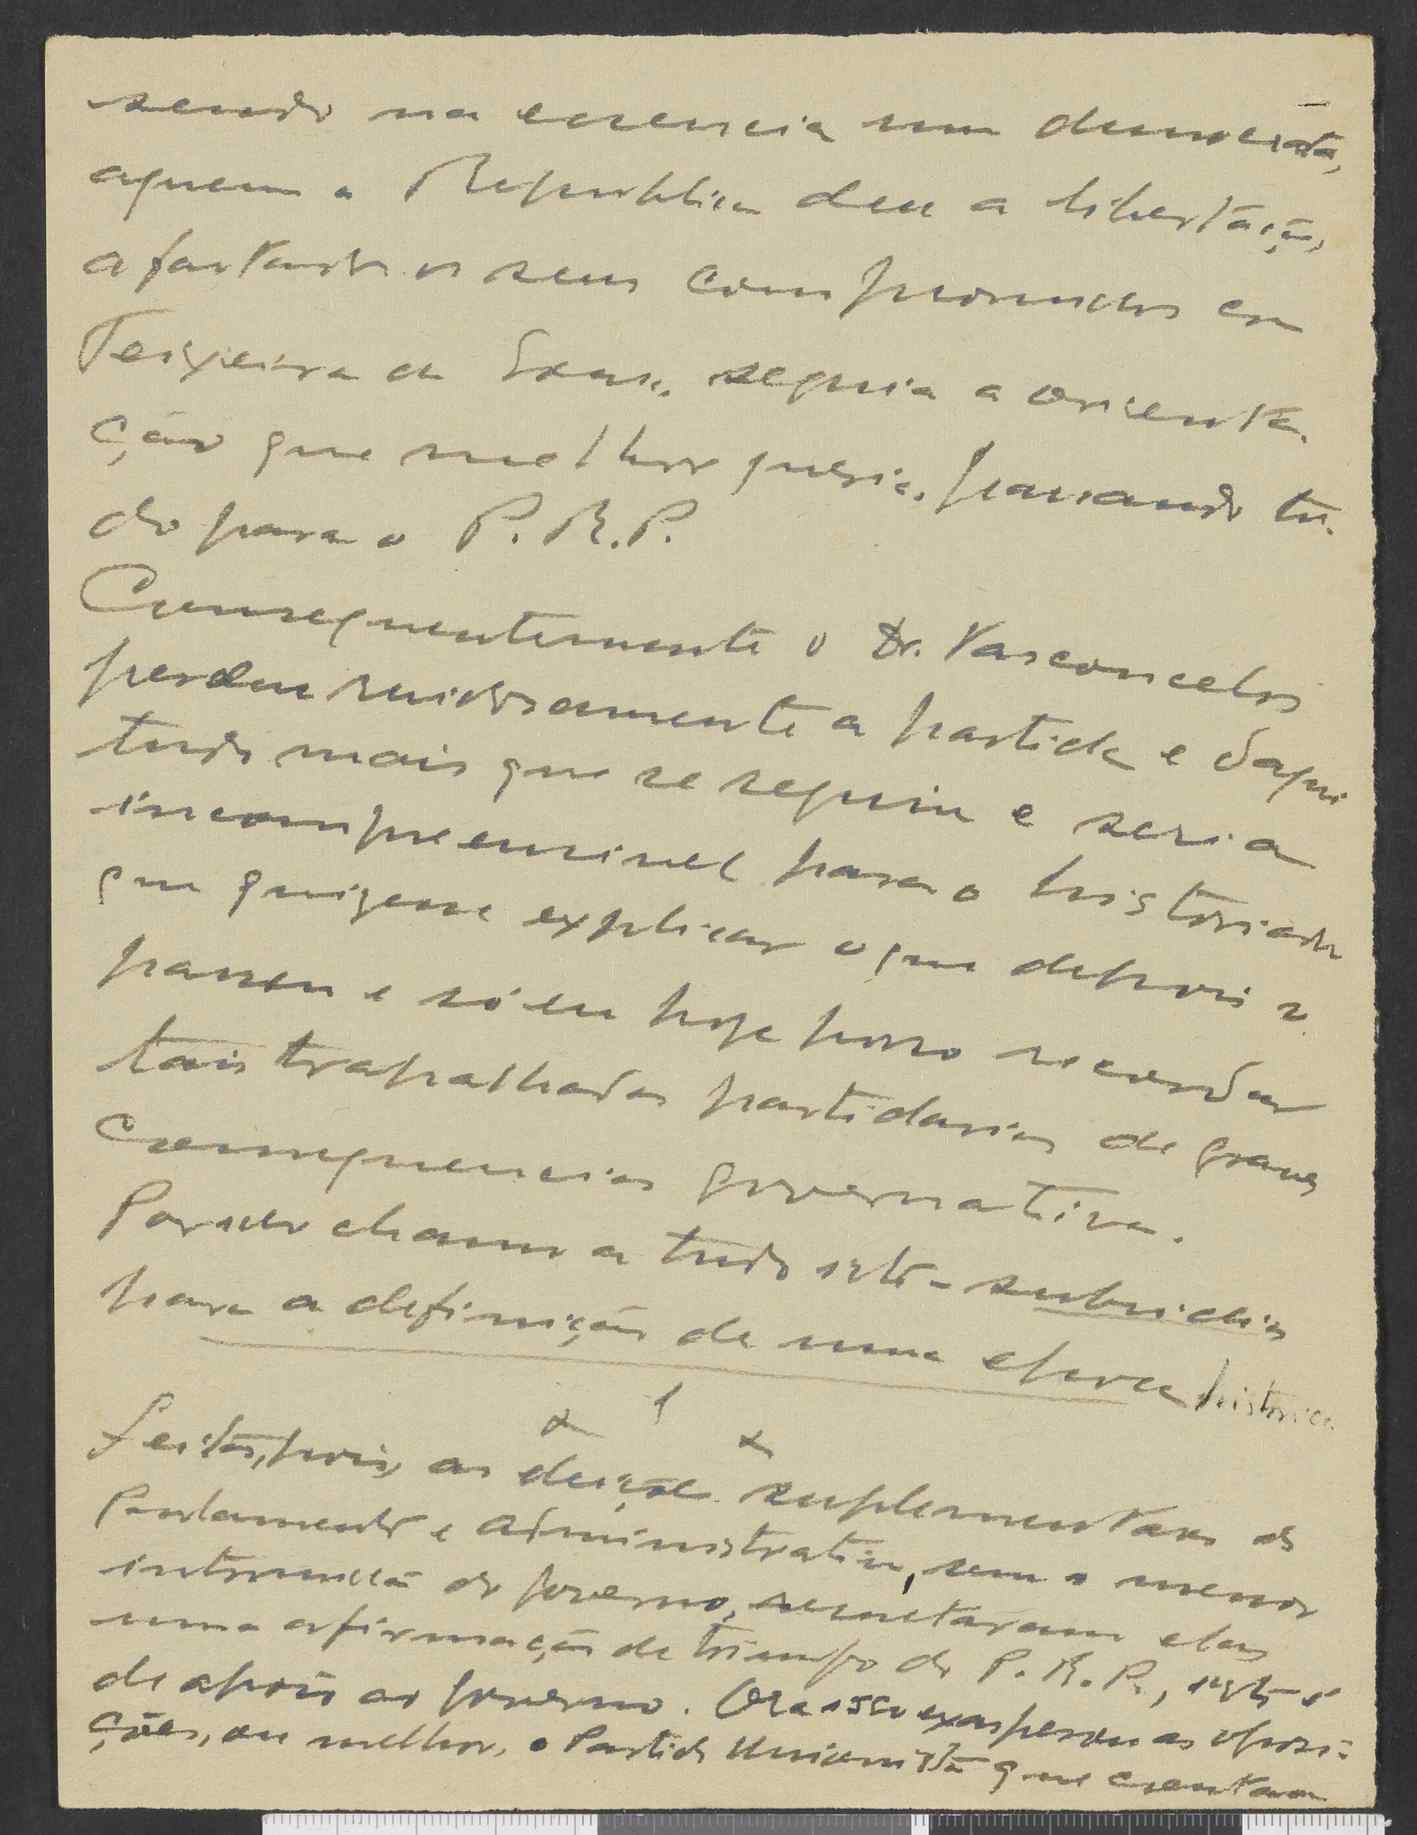 sendo na essencia um democrata,
aquem a Republica deu a libertação,
afastando os seus compromissos com
Teixeira de Sousa, seguia a orienta-
ção que melhor queria, passando tu-
do para o P.R.P.
Consequentemente o Dr. Vasconcelos
perdeu ruidosamente a partida e daqui
tudo mais que se seguiu e seria
incompreensivel para o historiador
que quizesse explicar o que depois se
passou e só eu hoje posso recordar
tais trapalhadas partidarias de graves
consequencias governativas.
Por isso chamo a tudo isto - subsidios
para a definição de uma epoca historica
Feitas, pois, as eleições suplementares do
Parlamento e administrativas, sem a menor
intromissão do governo, resultaram elas
uma afirmação de triunfo do P.R.P., isto é
de apoio ao governo. Ora isso exasperou as oposi-
ções, ou melhor, o Partido Unionista que contava